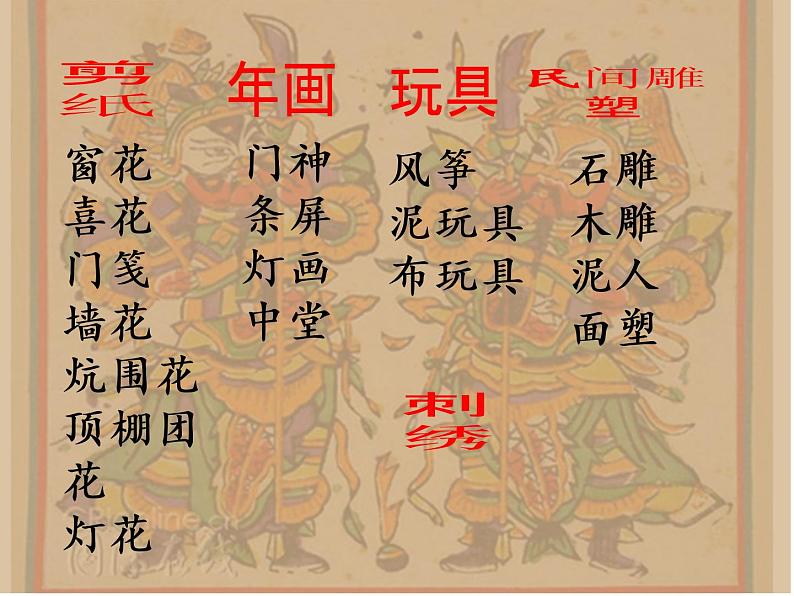 剪
纸
窗花
喜花
门笺
墙花
炕围花
顶棚团
花
灯花
年画
门神
条屏
灯画
中堂
玩具
风筝
泥玩具
布玩具
民间雕
塑
石雕
木雕
泥人
面塑
刺
绣